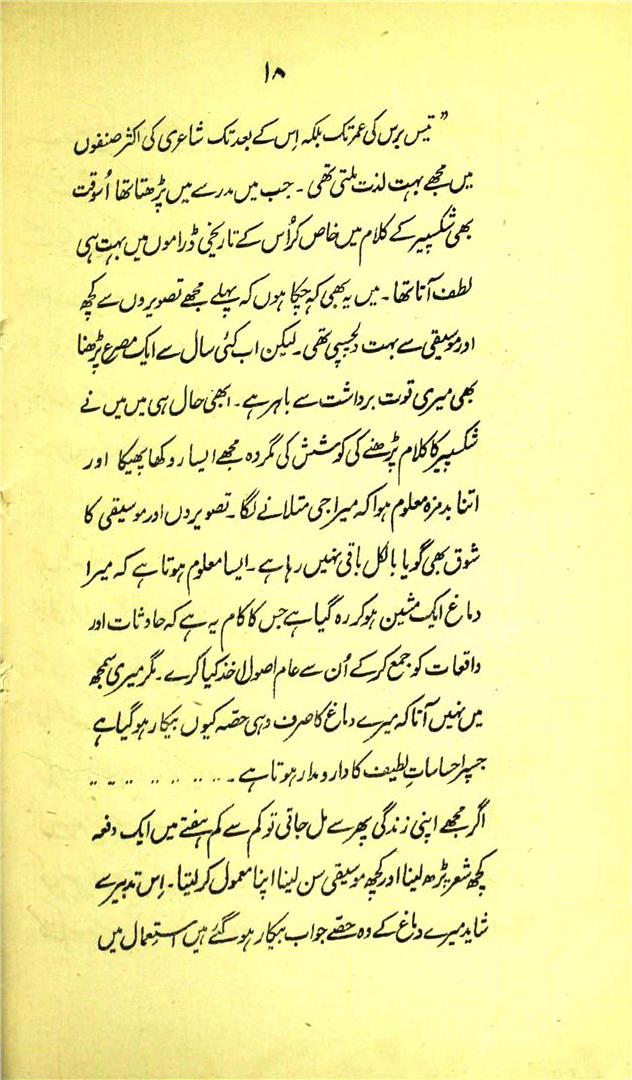 ۱۸
”تیس برس کی عمر تک بلکہ اِس کے بعد تک شاعری کی اکثر صنفوں
میں مجھے بہت لذت ملتی تھی ۔ جب میں مدرسے میں پڑھتا تھا اُسوقت
بھی شکسپیر کے کلام میں خاص کر اُس کے تاریخی ڈراموں میں بہت ہی
لطف آتا تھا ۔ میں یہ بھی کہ چکا ہوں کہ پہلے مجھے تصویروں سے کچھ
اور موسیقی سے بہت دلچسپی تھی ۔ لیکن اب کئی سال سے ایک مصرع پڑھنا
بھی میری قوت برداشت سے باہر ہے ۔ ابھی حال ہی میں میں نے
شکسپیر کا کلام پڑھنے کی کوشش کی مگر وہ مجھے ایسا روکھا پھیکا اور
اتنا بدمزہ معلوم ہوا کہ میرا جی متلانے لگا ۔ تصویروں اور موسیقی کا
شوق بھی گویا بالکل باقی نہیں رہا ہے ۔ ایسا معلوم ہوتا ہے کہ میرا
دماغ ایک مشین ہو کر رہ گیا ہے جس کا کام یہ ہے کہ حادثات اور
واقعات کو جمع کر کے اُن سے عام اصول اخذ کیا کرے ۔ مگر میری سمجھ
میں نہیں آتا کہ میرے دماغ کا صرف وہی حصّہ کیوں بیکار ہو گیا ہے
جسپر احساساتِ لطیف کا دارومدار ہوتا ہے ۔ .. .. .. .. .. .. ..
اگر مجھے اپنی زندگی پھر سے مل جاتی تو کم سے کم ہفتے میں ایک دفعہ
کچھ شعر پڑھ لینا اور کچھ موسیقی سن لینا اپنا معمول کر لیتا ۔ اِس تدبیر سے
شاید میرے دماغ کے وہ حصّے جو اب بیکار ہو گئے ہیں استعمال میں